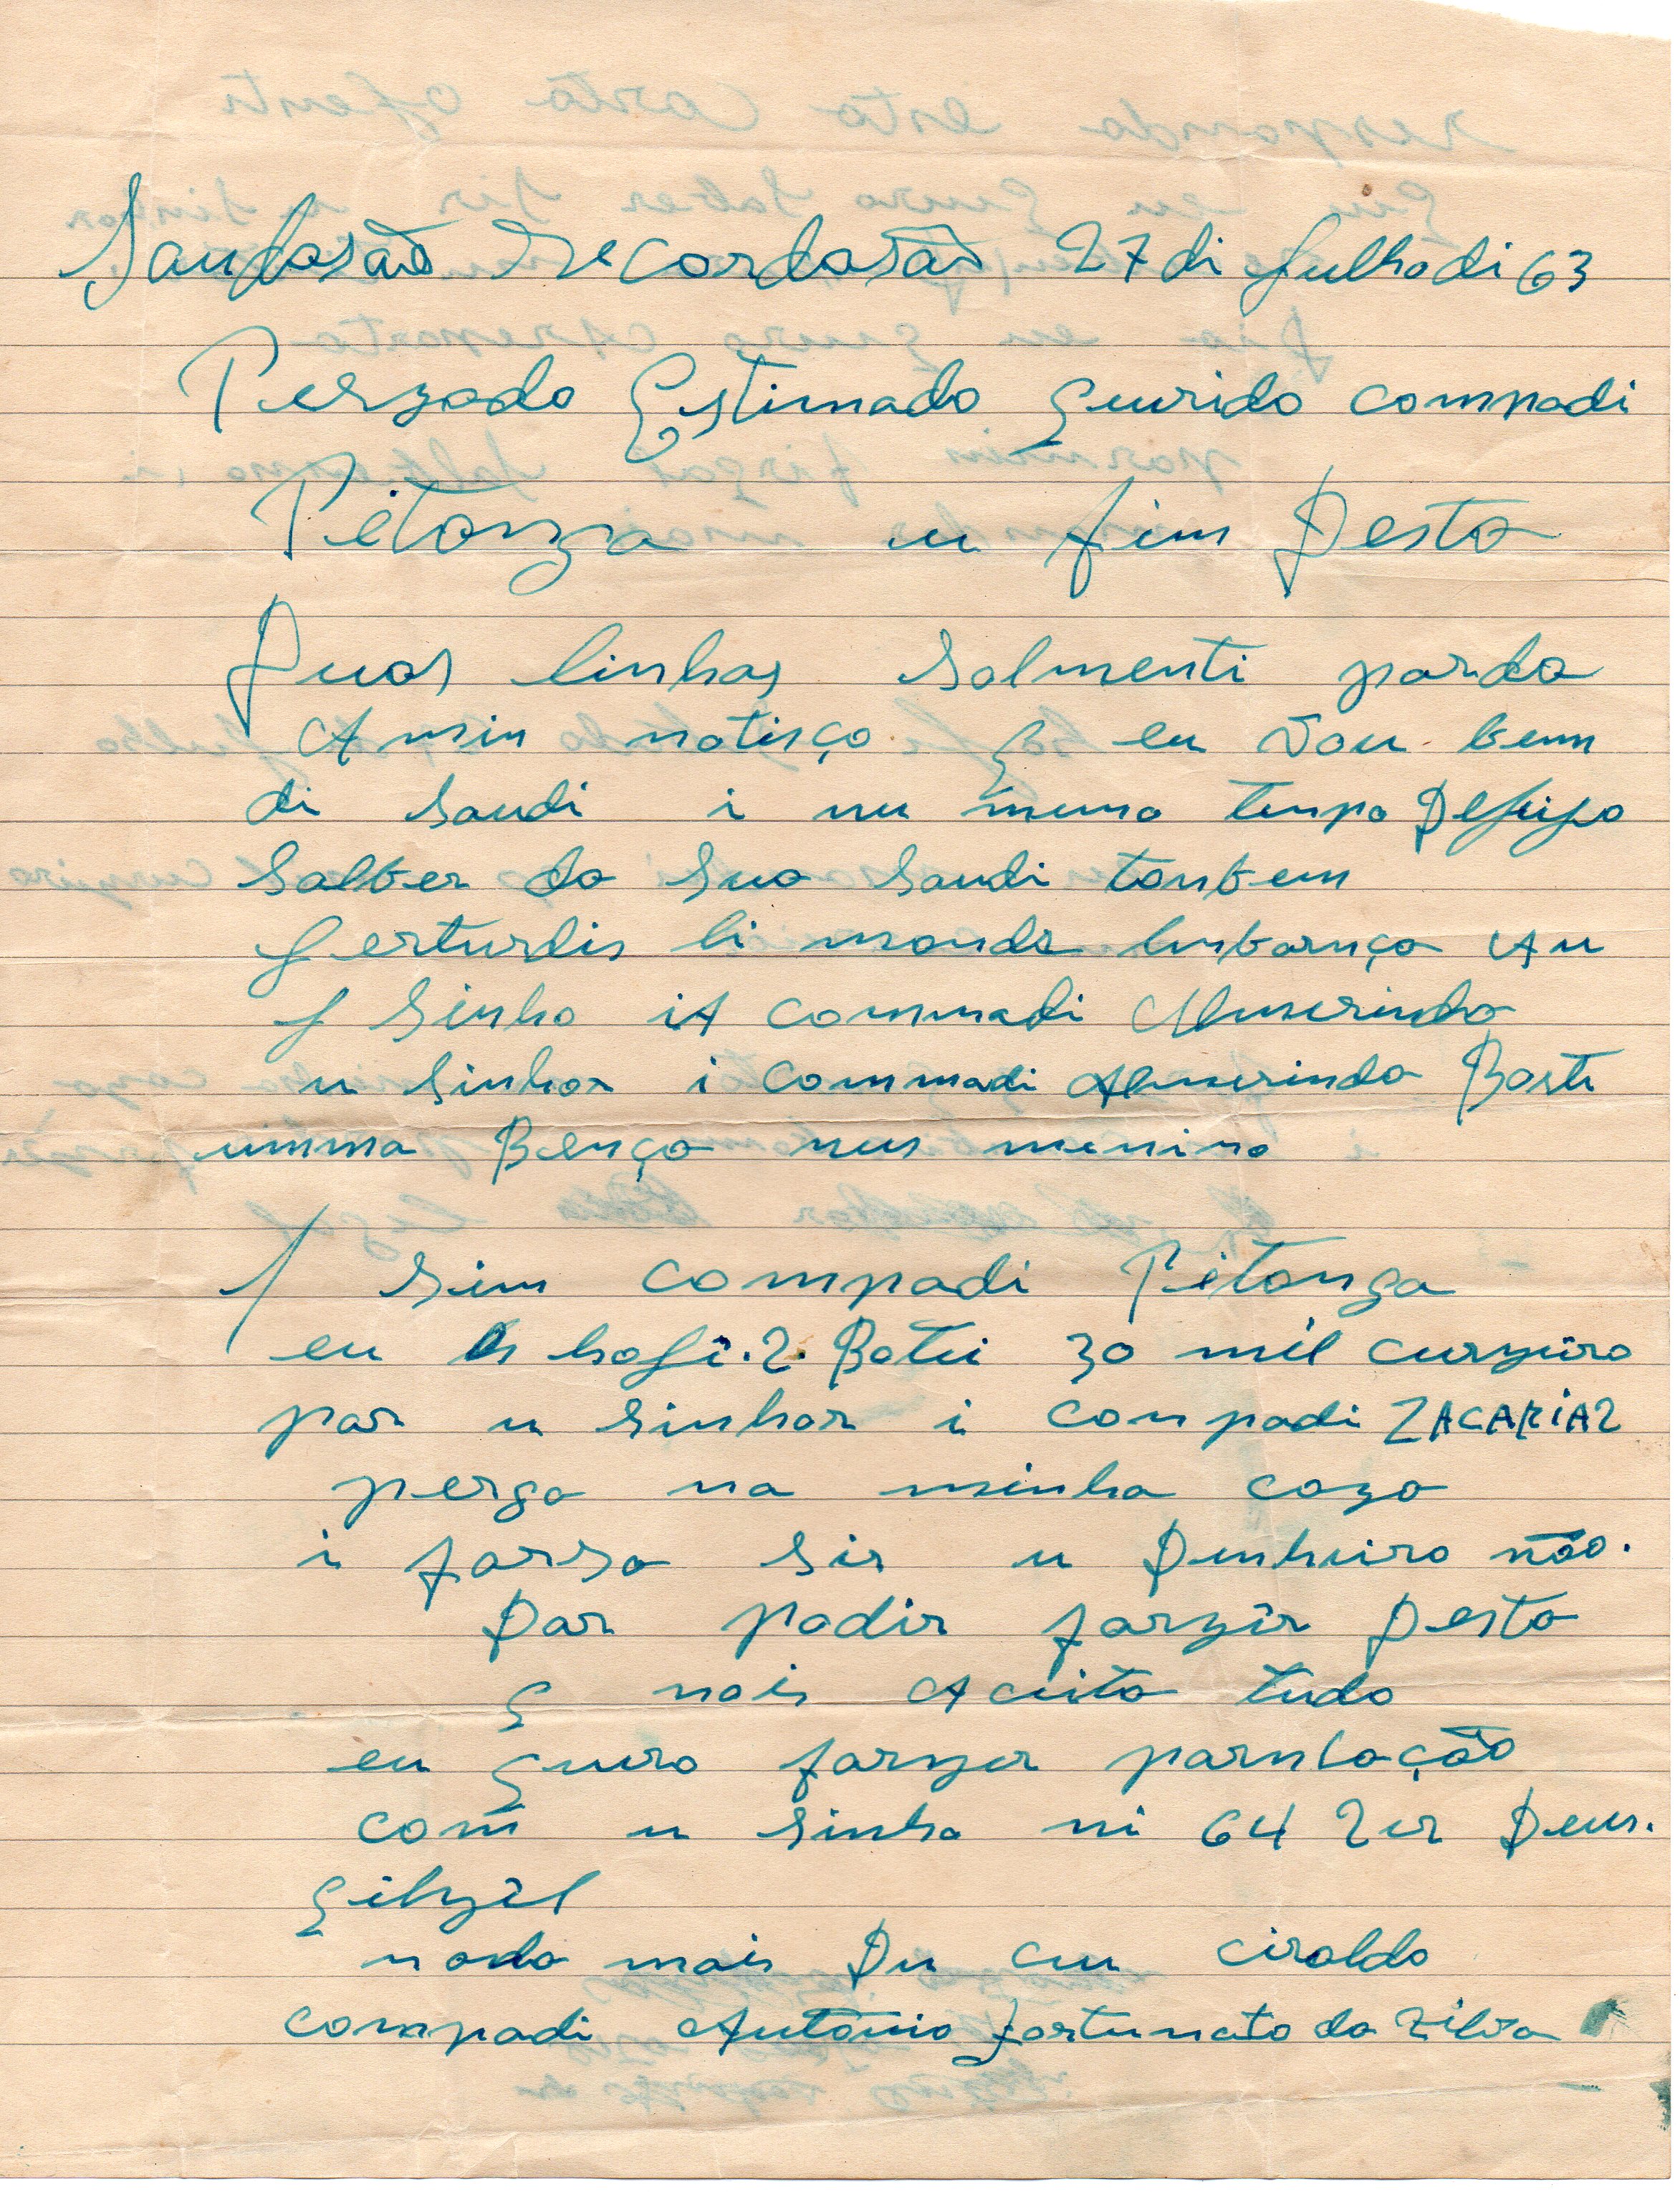 Saudasão Recordasão 27 di Julho di 63
Perzado Estimado Qurido compadi
Pitanga u fim Desta
Duas linhas Salmenti parda
A min notisça q eu vou bem
di saudi i nu mumo tenpo Desejo
Salber da Sua Saudi tanbem
Jerturdis li manda lenbarnça Au
Sinho iA commadi Almerinda
u Sinhor i Commadi Almerinda Boste
umma Bençà nus menino
Sim compadi Pitanga
eu hoji.2. Botei 30 mil curzuiro
par u sinhor i conpadi ZACARIAZ
perga na minha caza
i farsa sir u Dinheiro não.
Dar padir farzir Desta
q nois Aceita tudo
eu Quiro farzer parnlação
com u sinho ni 64 Zir Deus.
Qilzil
nada mais Du cu ciraldo
compadi Antônio fortunato da Zilva